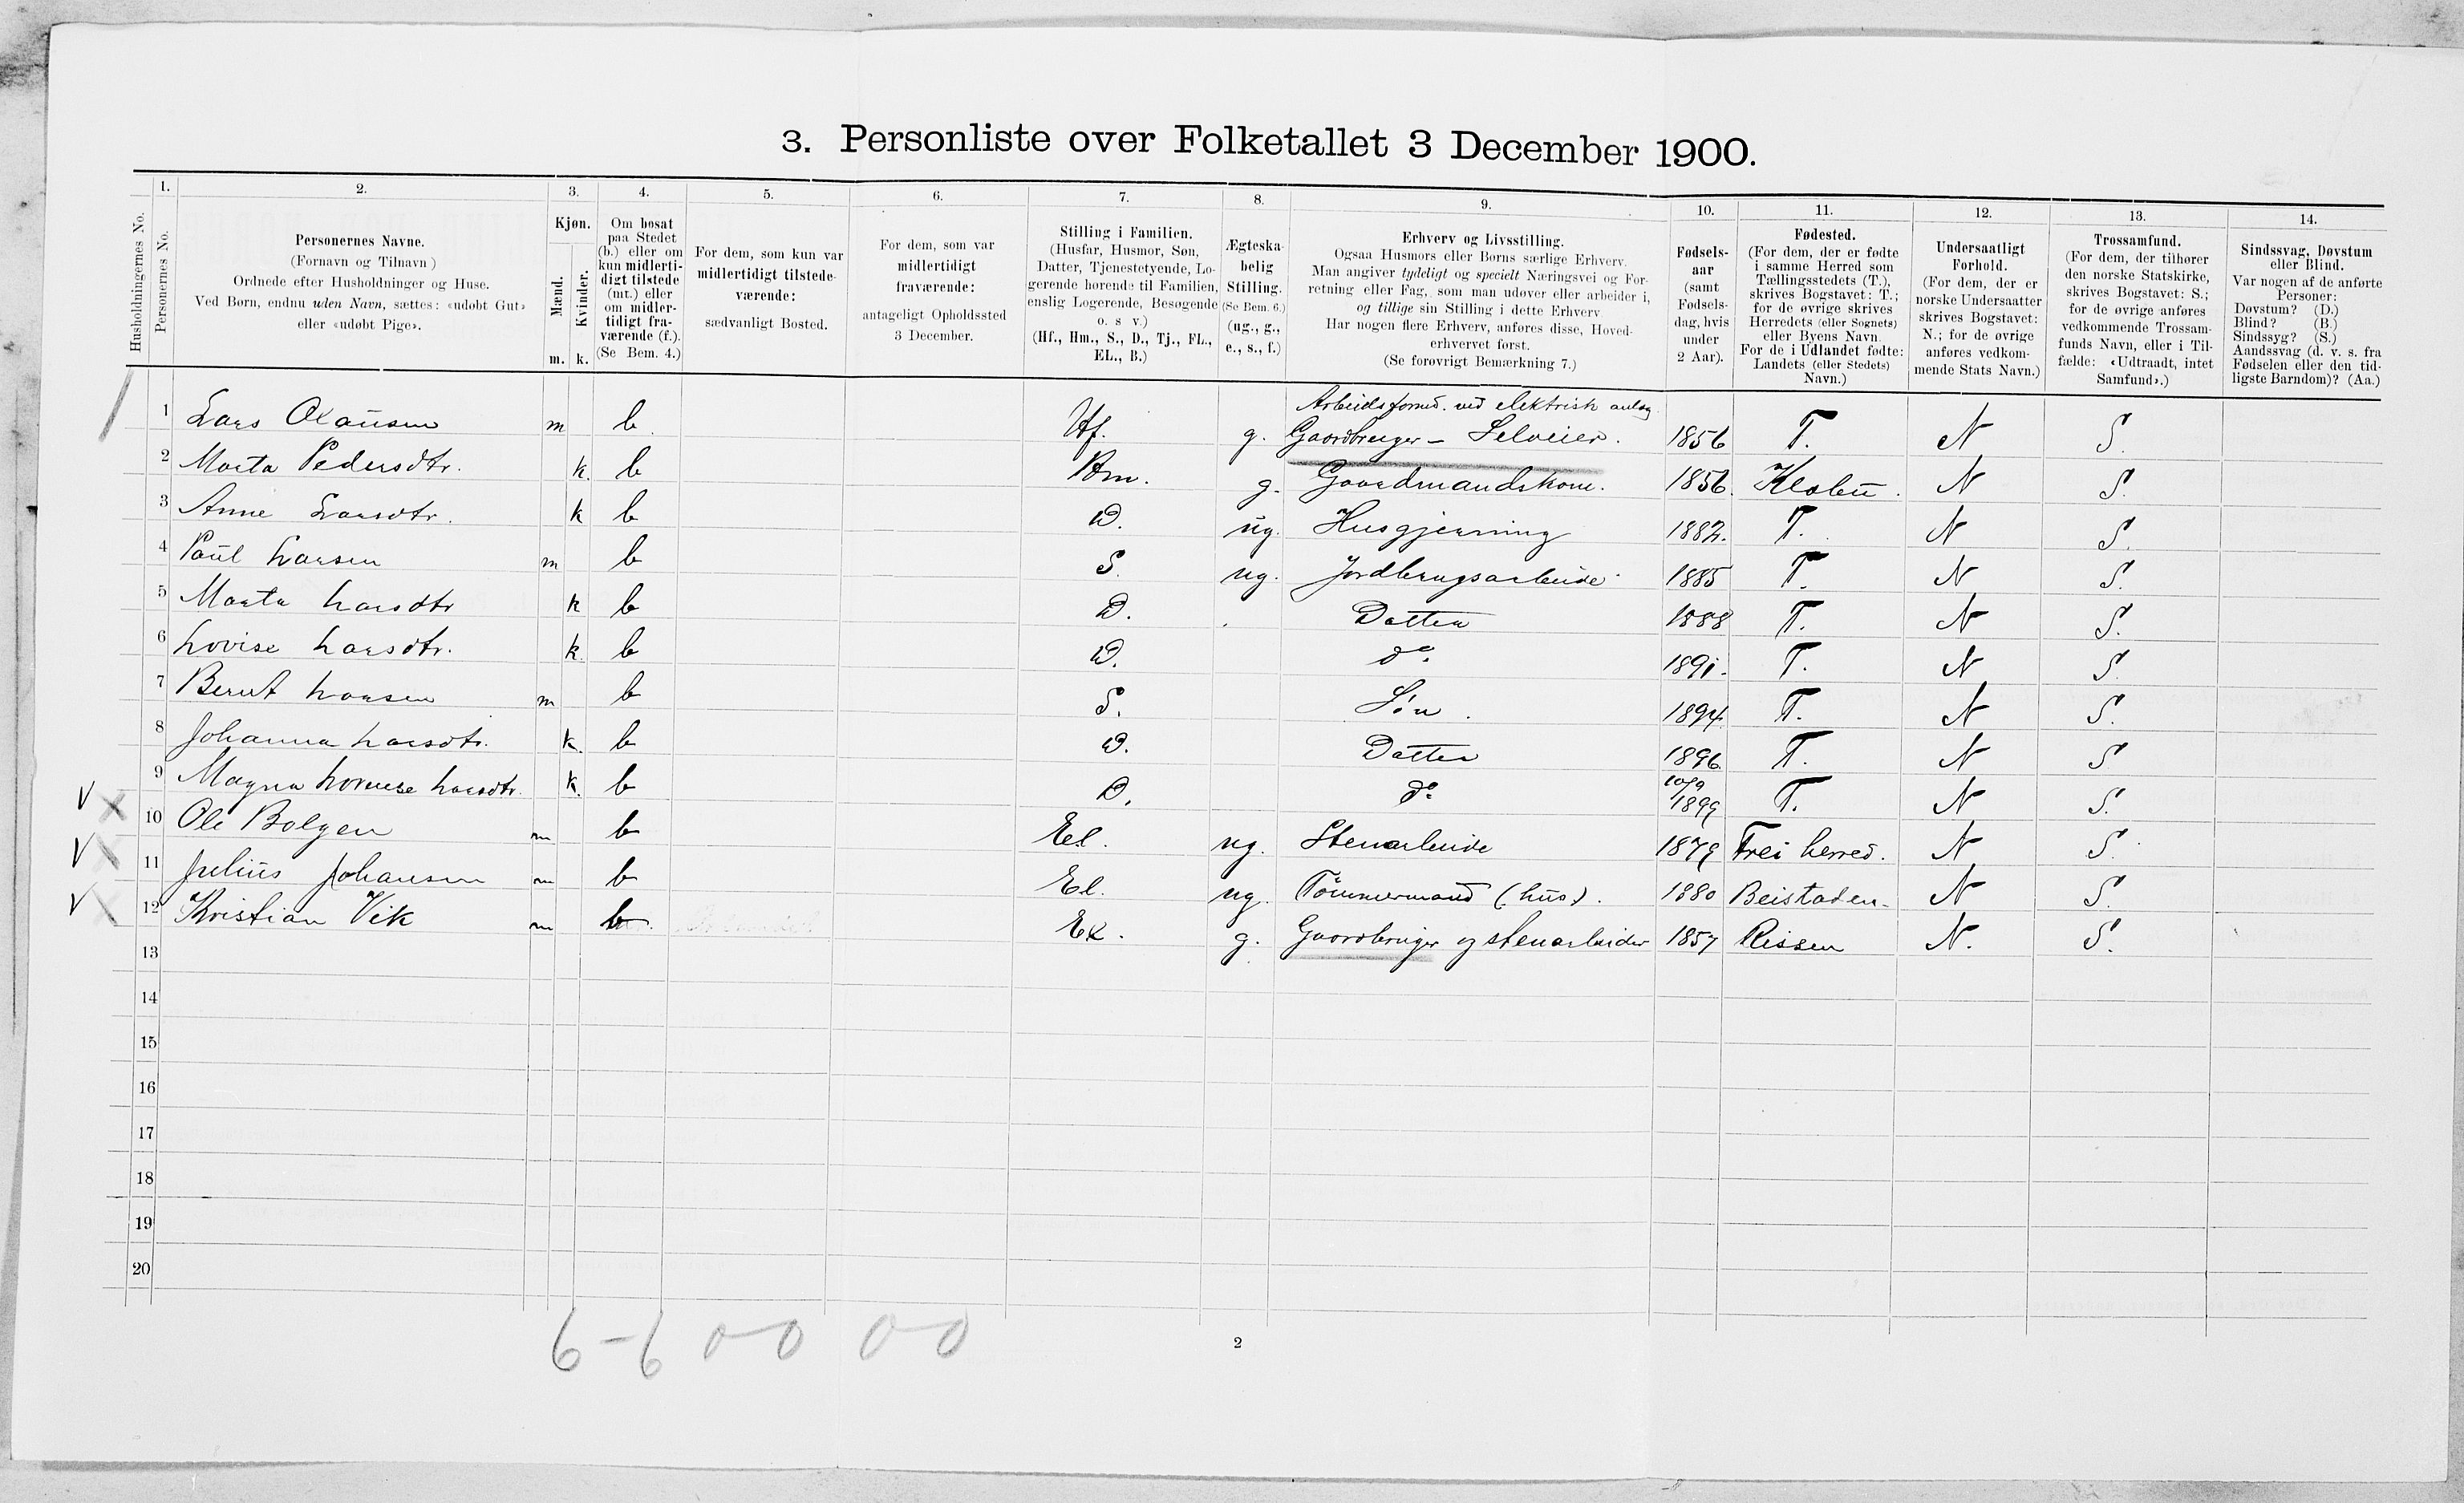 3. Personliste over Folketallet 3 December 1900.
1. 2. 3. 4. 5. 6. 7. 8. 9. 10. 11. 12. 13. 14.
Husholdningernes No.
Personernes No.
Personernes Navne.
(Fornavn og Tilnavn)
Ordnede efter Husholdninger og Huse.
Ved Børn, endnu uden Navn, sættes: «udøbt Gut»
eller «udøbt Pige».
Kjøn.
Mænd.
Kvinder.
m. k.
Om bosat
paa Stedet
(b.) eller om
kun midlerti-
digt tilstede
(mt.) eller
om midler-
tidigt fra-
værende (f.).
(Se Bem. 4.)
For dem, som kun var
midlertidigt tilstede-
værende:
sædvanligt Bosted.
For dem, som var
midlertidigt
fraværende:
antageligt Opholdssted
3 December.
Stilling i Familien.
(Husfar, Husmor, Søn,
Datter, Tjenestetyende, Lo-
gerende hørende til Familien,
enslig Logerende, Besøgende
o. s v.)
(Hf., Hm., S., D., Tj., FL.,
EL., B.)
Ægteska-
belig
Stilling.
(Se Bem. 6.)
(ug., g.,
e., s., f.)
Erhverv og Livsstilling.
Ogsaa Husmors eller Børns særlige Erhverv.
Man angiver tydeligt og specielt Næringsvei og For-
retning eller Fag, som man udøver eller arbeider i,
og tillige sin Stilling i dette Erhverv
Har nogen flere Erhverv, anføres disse, Hoved-
erhvervet først.
(Se forøvrigt Bemærkning 7.)
Fødsels-
aar
(samt
Fødsels-
dag, hvis
under
2 Aar).
Fødested.
(For dem, der er fødte
i samme Herred som
Tællingsstedets (T.),
skrives Bogstavet: T.;
for de øvrige skrives
Herredets (eller Sognets)
eller Byens Navn.
For de i Udlandet fødte:
Landets (eller Stedets)
Navn.)
Undersaatligt
Forhold.
(For dem, der er
norske Undersaatter
skrives Bogstavet:
N.; for de øvrige
anføres vedkom-
mende Stats Navn.)
Trossamfund.
(For dem, der tilhører
den norske Statskirke,
skrives Bogstavet: S.;
for de øvrige anføres
vedkommende Trossam-
funds Navn, eller i Til-
fælde: «Udtraadt, intet
Samfund».)
Sindssvag, Døvstum
eller Blind.
Var nogen af de anførte
Personer:
Døvstum? (D.)
Blind? (B.)
Sindssyg? (S.)
Aandssvag (d. v. s. fra
Fødselen eller den tid-
ligste Barndom)? (Aa.)
Arbeidsformd. ved elektrisk anlæg
1 Lars Olausen m b Hf. g. Gaardbruger - Selveier. 1856 T. N S.
2 Marta Pedersdtr. k. b Hm. g. Gaardmandskone. 1856. Klæbu. N S.
3 Anne Larsdtr. k b D. ug. Husgjerning 1882. T. N S.
4 Paul Larsen m b S. ug. Jordbrugsarbeide 1885 T. N S.
5 Marta Larsdtr k b D. Datter 1888 T. N S.
6 Lovise Larsdtr. k. b D. do. 1891. T. N S.
7 Bernt Larsen m b S. Søn. 1894. T. N S.
8 Johanna Larsdtr. k. b D. Datter 1896. T. N S
9 Magna Lovise Larsdtr. k. b D. do. 10/9 1899 T. N S.
10 Ole Bolgen m b El. ug. Stenarbeide 1879 Frei herred. N S.
11 Julius Johansen m b El. ug. Tömmermand (hus). 1880 Beistaden. N S.
12 Kristian Vik m b. El. g. Gaardbruger og stenarbeider 1857 Rissen N. S.
13
14
15
16
17
18
19
20
6-6 0-0 0-0
2